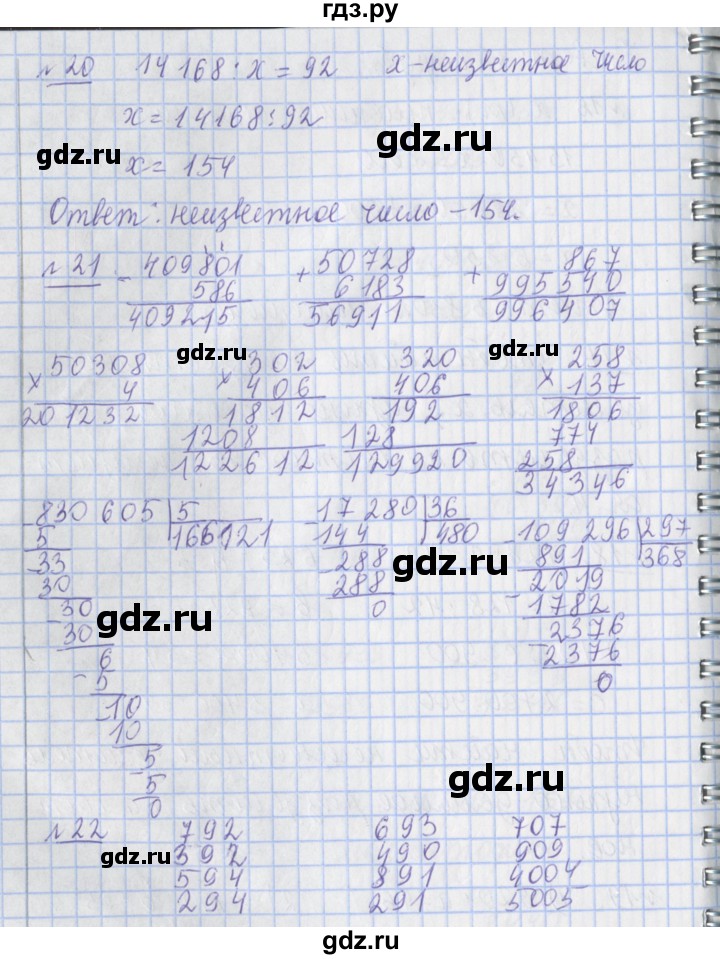 гдз.ру
№ 20 14168 : x = 92 x - неизвестное число
x = 14168 : 92
gdz.ru
gdz.ru
x = 154
Ответ: неизвестное число - 154.
№ 21 - 409801 + 50728 + 867
586 6183 995540
409215 56911 996407
gdz.ru
gdz.ru
x 50308 x 302 320 x 258
4 406 406 137
201232 1812 192 1806
1208 128 774
122612 129920 258
34346
- 830605 | 5 - 17280 | 36 - 109296 | 297
5 166121 144 480 891 368
- 33 - 288 - 2019
30 288 1782
- 30 0 - 2376
30 2376
6 0
- 5
- 10
10
- 5
5
0
gdz.ru
gdz.ru
gdz.ru
№ 22 792 693 707
392 490 909
594 891 4004
294 291 5005
gdz.ru
gdz.ru
gdz.ru